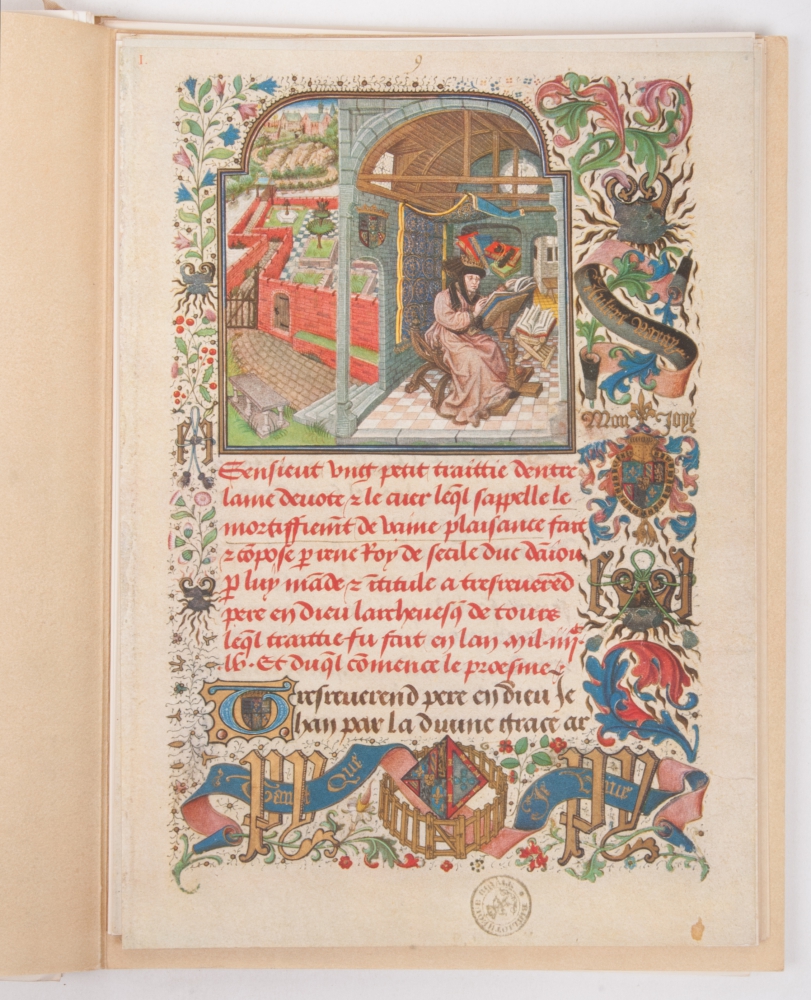 1.
9
Mon Joye
Sensieut vng petit traittie dentre
lame deuote ⁊ le cuer leq̄l sappelle le
mortiffiem̄t de vaine plaisance fait
⁊ cōpose p̲ rene Roy de secile duc daiou
p̲ luy māde ⁊ ītitule a tresreuerēd
pere en dieu larcheuesq̄ de tours
leq̄l traittie fu fait en lan mil iiijᶜ
lv. Et duq̄l cōmence le proesme
Tresreuerend pere en dieu Je
han par la diuine grace ar
Tant Que Je Viue